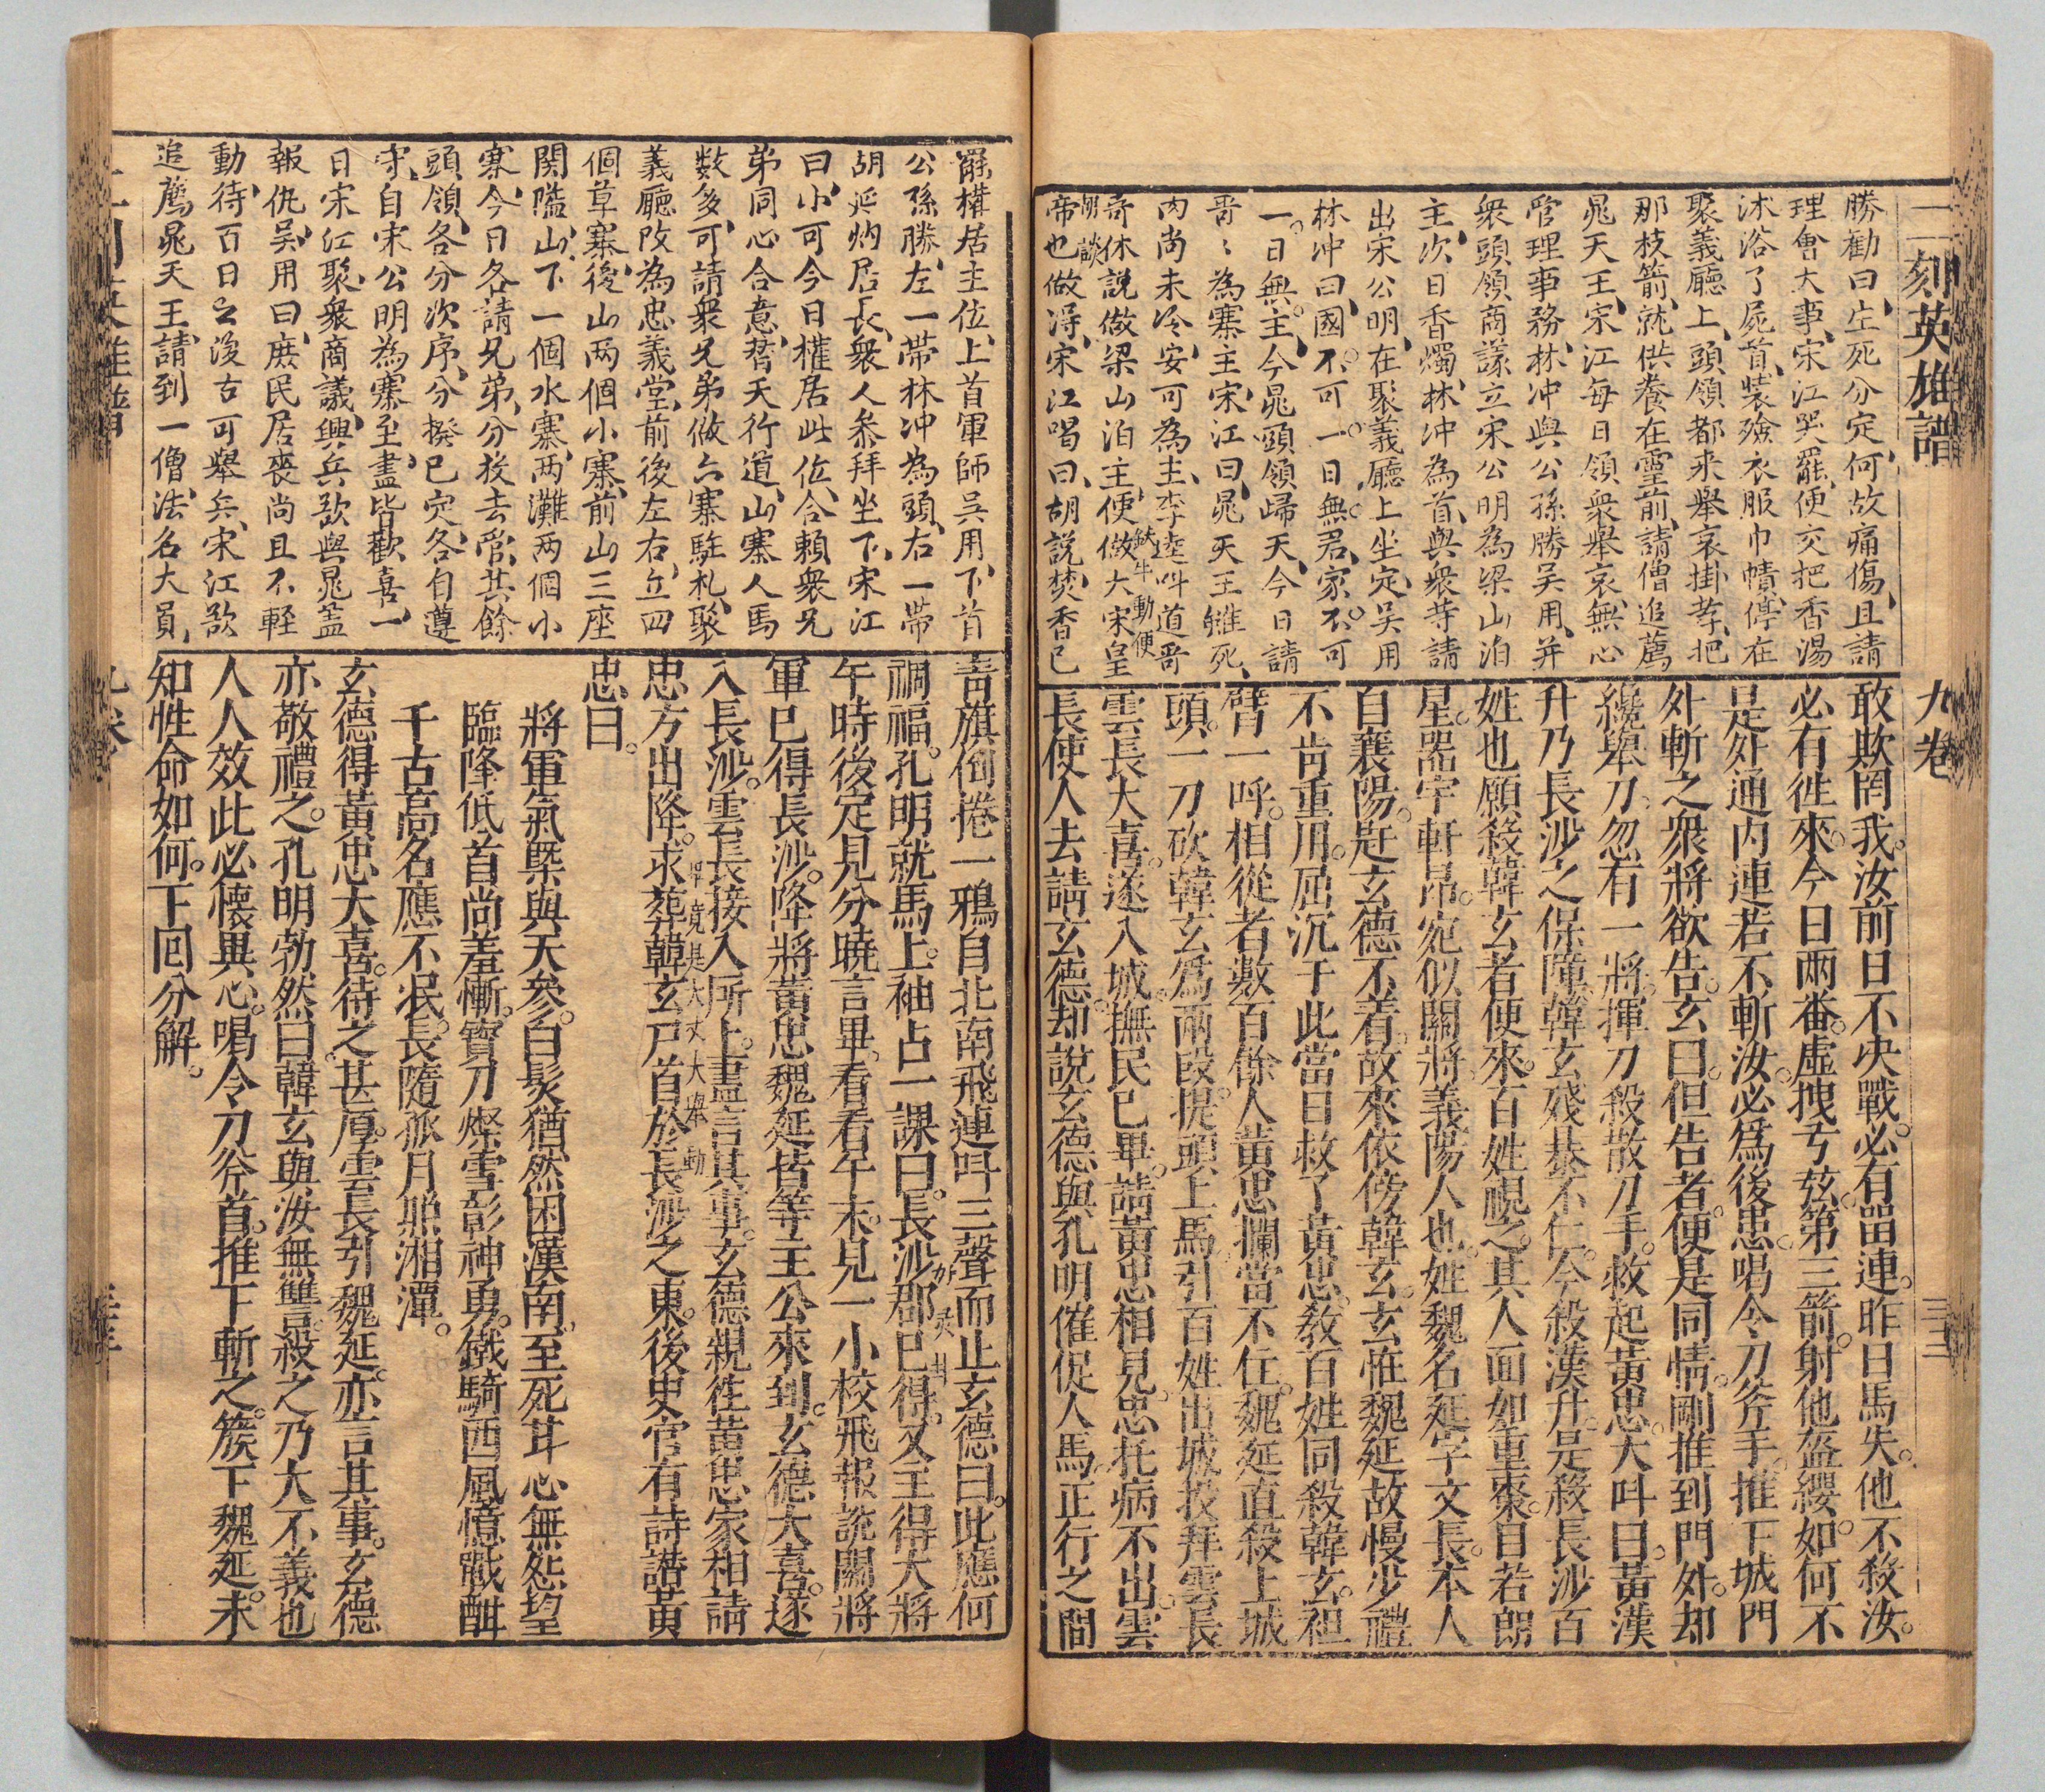 二刻英雄譜
九卷
勝勸曰生死分定何故痛傷且請
理會大事宋江哭罷便交把香湯
沐浴了屍首裝殮衣服巾幘停在
聚義廳上頭領都來舉哀掛孝把
那枝箭就供養在靈前請僧追薦
晁天王宋江每日領衆舉哀無心
管理事務林冲與公孫勝吳用并
衆頭領商議立宋公明為梁山泊
主次日香燭林冲為首與衆等請
出宋公明在聚義廳上坐定吳用
林冲曰國不可一日無君家不可
一日無主今晁頭領歸天今日請
哥〻為寨主宋江曰晁天王雖死
肉尚未冷安可為主李逵叫道哥
哥休説做梁山泊主便做大宋皇
帝也做得宋江喝曰胡説焚香已
敢欺罔我汝前日不决戰必有畱連昨日馬失他不殺汝
必有徃來今日兩番虛拽弓弦第三箭射他盔纓如何不
是外通内連若不斬汝必爲後患喝令刀斧手推下城門
外斬之衆將欲告玄曰但告者便是同情剛推到門外却
纔舉刀忽有一將揮刀殺散刀手救起黃忠大叫曰黃漢
升乃長沙之保障韓玄殘暴不仁今殺漢升是殺長沙百
姓也願殺韓玄者便來百姓視之其人面如重棗目若朗
星器宇軒昂宛似關將義陽人也姓魏名延字文長本人
自襄陽赶玄德不着故來依傍韓玄玄恠魏延故慢少禮
不肯重用屈沉于此當日救了黃忠教百姓同殺韓玄袒
臂一呼相從者數百餘人黃忠攔當不住魏延直殺上城
頭一刀砍韓玄爲兩段提頭上馬引百姓出城投拜雲長
雲長大喜遂入城撫民已畢請黃忠相見忠托病不出雲
長使人去請玄德却說玄德與孔明催促人馬正行之間
罷權居主位上首軍師吳用下首
公孫勝左一帶林冲為頭右一帶
胡延灼居長衆人叅拜坐下宋江
曰小可今日權居此位合賴衆兄
弟同心合意替天行道山寨人馬
数多可請衆兄弟做六寨駐札聚
義廳改為忠義堂前後左右立四
個草寨後山两個小寨前山三座
関隘山下一個水寨两灘两個小
寨今日各請兄弟分投去管其餘
頭領各分次序分撥已定各自遵
守自宋公明為寨主盡皆歡喜一
日宋江聚衆商議興兵欲與晁蓋
報仇吳用曰庶民居喪尚且不輕
動待百日之後方可舉兵宋江欲
追薦晁天王請到一僧法名大員
青旗倒捲一鴉自北南飛連叫三聲而止玄德曰此應何
禍福孔明就馬上袖占一課曰長沙郡已得又主得大將
午時後定見分曉言畢看看午末見一小校飛報說關將
軍已得長沙降將黃忠魏延皆等主公來到玄德大喜遂
入長沙雲長接入所上盡言其事玄德親徃黃忠家相請
忠方出降求葬韓玄尸首於長沙之東後史官有詩讃黃
忠曰
將軍氣槩與天參白髪猶然困漢南至死甘心無怨望
臨降低首尚羞慚寶刀燦雪彰神勇鐵騎西風憶戰酣
千古高名應不泯長隨孤月照湘潭
玄德得黃忠大喜待之甚厚雲長引魏延亦言其事玄德
亦敬禮之孔明勃然曰韓玄與汝無讐殺之乃大不義也
人人效此必懷異心喝令刀斧首推下斬之簇下魏延未
知性命如何下囘分解